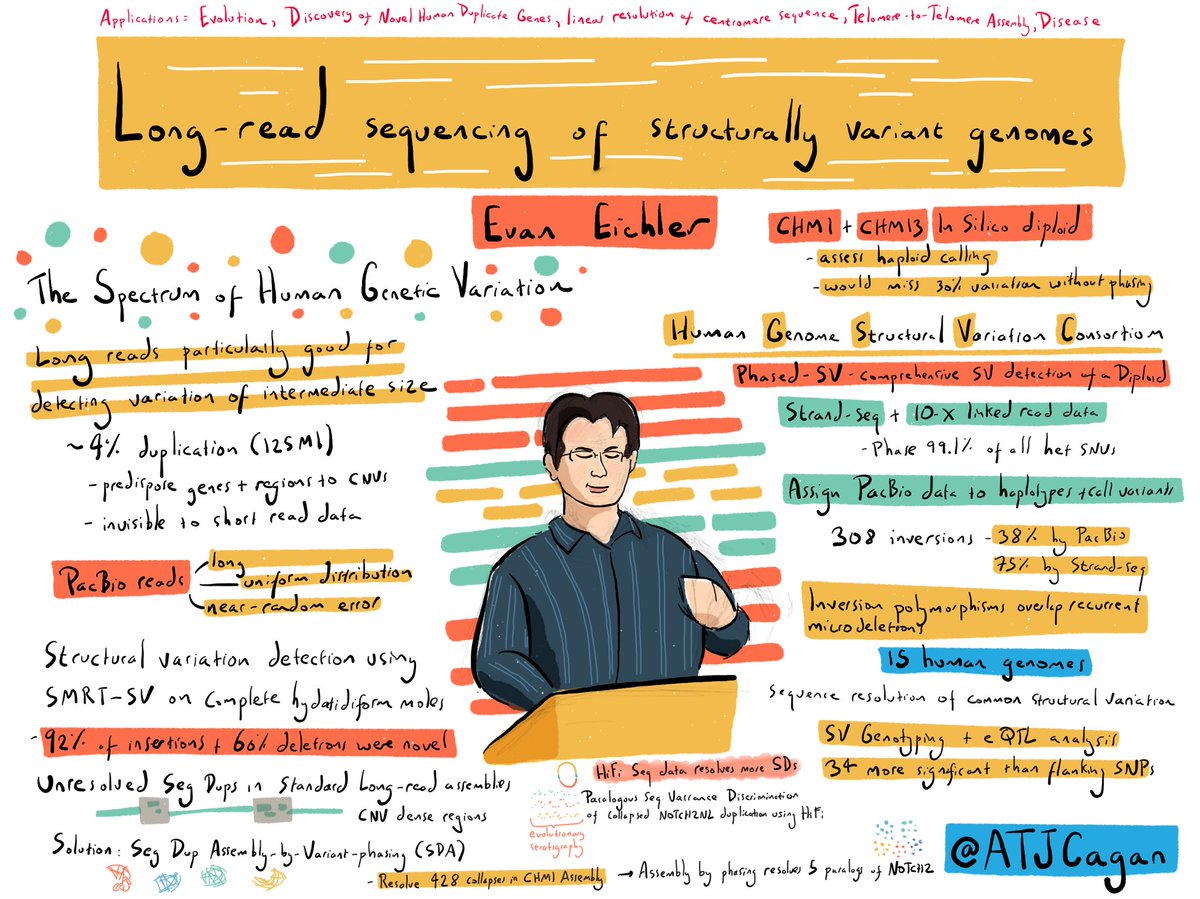 Applications: Evolution, Discovery of Novel Human Duplicate Genes, linear resolution of centromere sequence, Telomere-to-Telomere Assembly, Disease
Long-read sequencing of structurally variant genomes
Evan Eichler
The Spectrum of Human Genetic Variation
Long reads particularly good for
detecting variation of intermediate size
~4% duplication (125Mb)
- predispose genes + regions to CNVs
- invisible to short read data
PacBio reads
long
uniform distribution
near-random error
Structural variation detection using
SMRT-SV on Complete hydatidiform moles
- 92% of insertions + 60% deletions were novel
Unresolved Seg Dups in Standard Long-read assemblies
CNV dense regions
Solution: Seg Dup Assembly-by-Variant-phasing (SDA)
- Resolve 428 collapses in CHM1 Assembly → Assembly by phasing resolves 5 paralogs of NOTCH2
CHM1 + CHM13 In Silico diploid
- assess haploid calling
- would miss 30% variation without phasing
Human Genome Structural Variation Consortium
Phased-SV-comprehensive SV detection of a Diploid
Strand-seq + 10-X linked read data
- Phase 99.1% of all het SNVs
Assign PacBio data to haplotypes + call variants
308 inversions - 38% by PacBio
75% by Strand-seq
Inversion polymorphisms overlap recurrent
microdeletions
15 human genomes
Sequence resolution of common structural variation
SV Genotyping + eQTL analysis
34 more significant than flanking SNPs
HiFi Seq data resolves more SDs
Paralogous Seq Variance Discrimination
of collapsed NOTCH2NL duplication using HiFi
evolutionary
stratigraphy
@ATJCagan